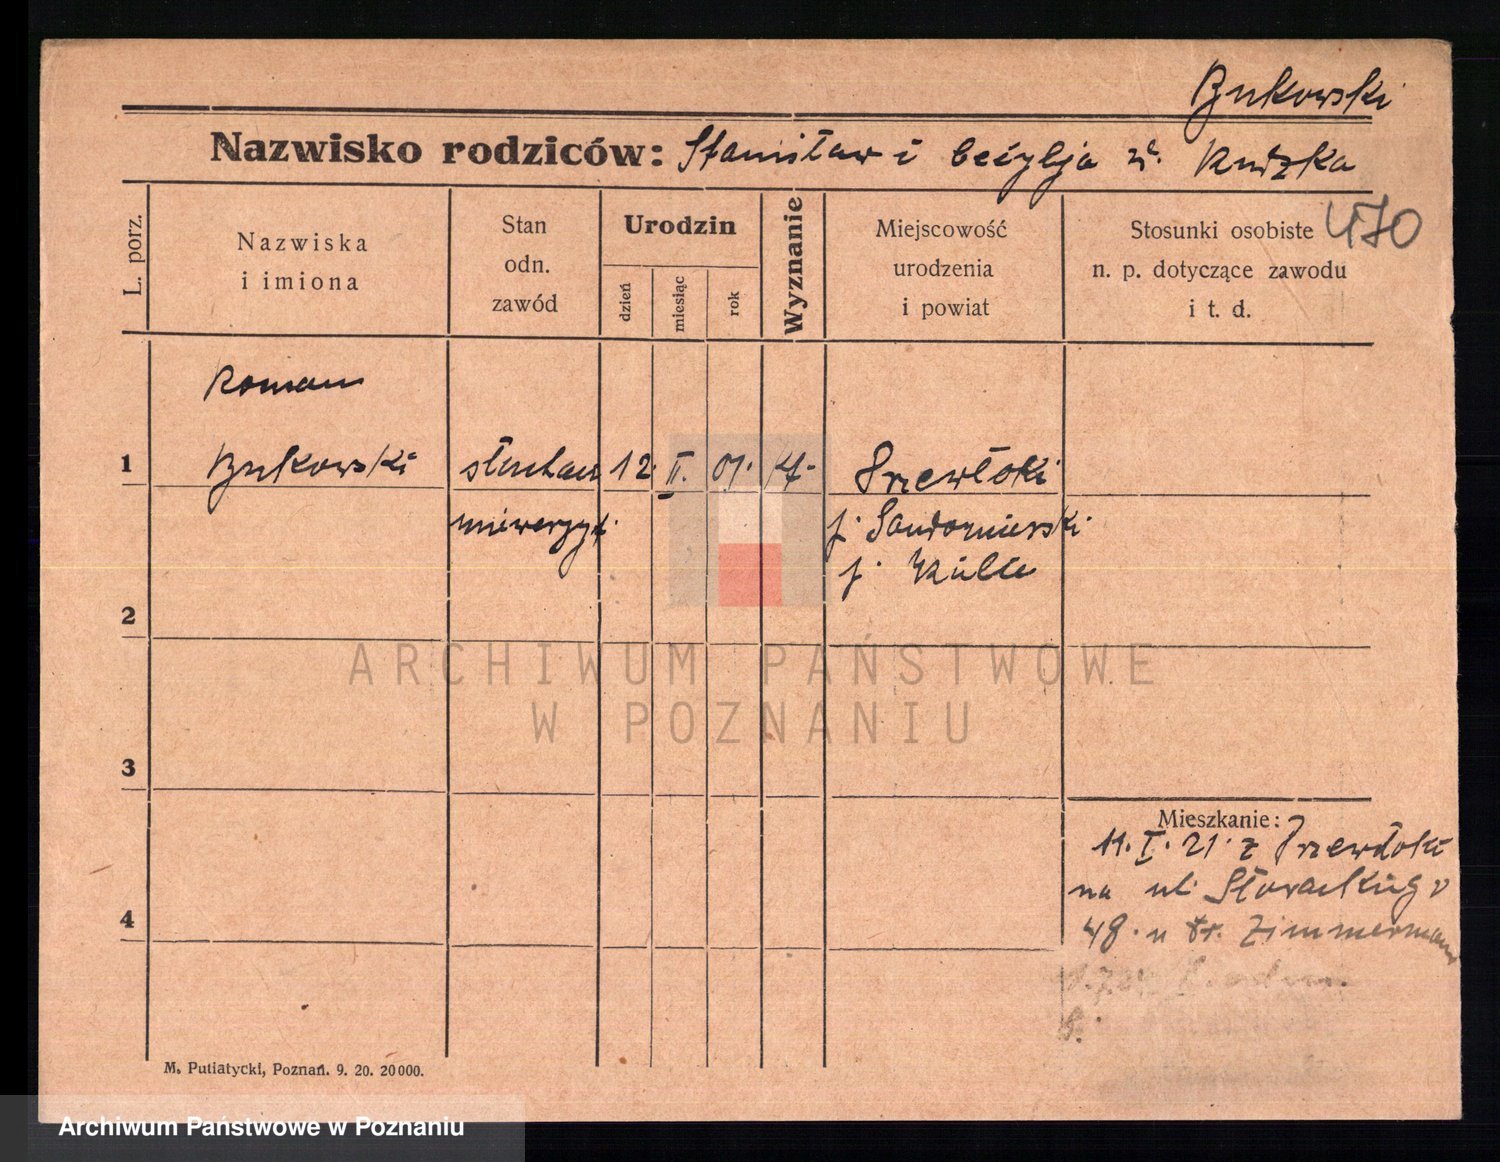 Bukowski
Nazwisko rodziców: Stanisław i Cecylja z. Rudzka
470
L. porz.
Nazwiska
i imiona
Stan
odn.
zawód
Urodzin
dzień
miesiąc
rok
Wyznanie
Miejscowość
urodzenia
i powiat
Stosunki osobiste
n. p. dotyczące zawodu
i t. d.
Roman
1 Bukowski słuchacz 12. II. 01. kt. Przewłoki
uniwerzyt. p. Sandomierski
p.
2
3
4
Mieszkanie:
11. I. 21. z Przewłoki
na ul. Słowackiego
48. u Zimmermann
M. Putiatycki, Poznań. 9. 20. 20000.
ARCHIWUM PAŃSTWOWE
W POZNANIU
Archiwum Państwowe w Poznaniu